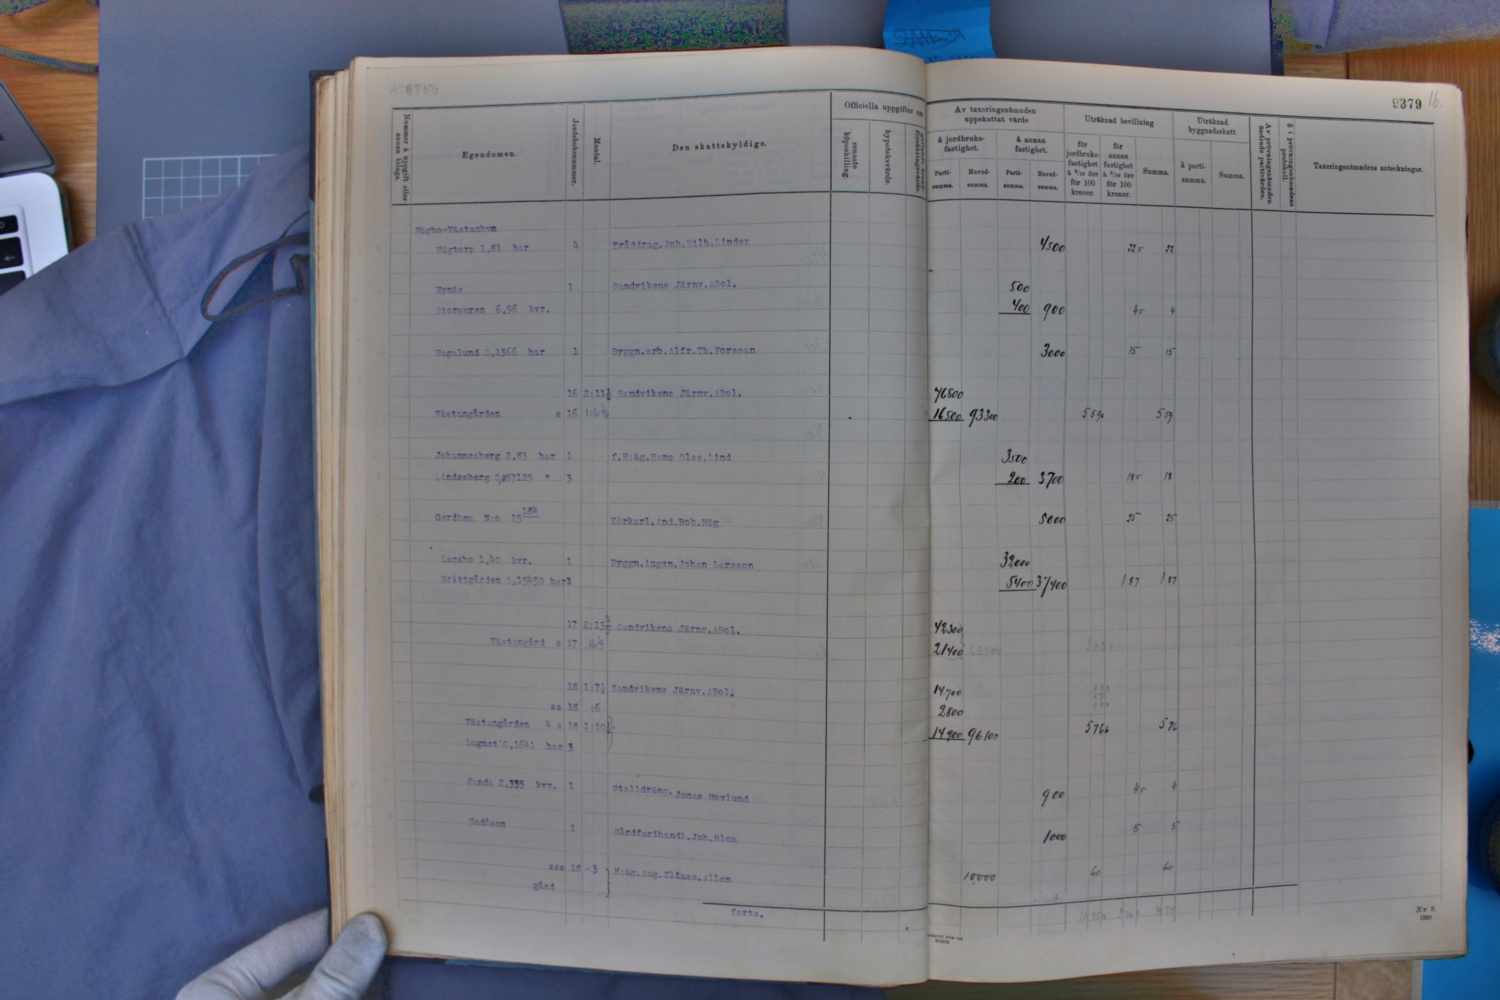 9379 16.
Nummer å uppgift eller annan bilaga.
Egendomen.
Jordeboksnummer.
Mantal.
Den skattskyldige.
Officiella uppgifter om
senaste köpeskilling.
hypoteksvärde.
Av taxeringsnämnden uppskattat värde
å jordbruksfastighet.
å annan fastighet.
Partisumma.
Huvudsumma.
Partisumma.
Huvudsumma.
Uträknad bevillning
för jordbruksfastighet å 6/10 öre för 100 kronor.
för annan fastighet å 5/10 öre för 100 kronor.
Summa.
Uträknad byggnadsskatt
å partisumma.
Summa.
Av prövningsnämnden ändrade partivärden.
§ i prövningsnämndens protokoll.
Taxeringsnämndens anteckningar.
Högbo-Västanbyn
Högtorp 1,81 har 4 Tråddrag.Joh.Wilh.Linder 4500 225 22
1 Sandvikens Järnv.ABol. 500
Stormuren 6,96 kvr. 400 900 45 4
Hagalund 0,1366 har 1 Byggn.arb.Alfr.Th.Forsman 3000 15 15
16 2:11½ Sandvikens Järnv.ABol. 76800
Västangården s 16 16500 93300 559
Johannesberg 2,83 har 1 f.H:äg.Hans Olsc.Lind 3500
Lindesberg " 3 200 3700 185 18
Gerdhem N:o 15 Körkarl.And.Rob.Hög 5000 25 25
Larsbo 1,40 kvr. 1 Byggn.ingen.Johan Larsson 32000
Brittgården 0,15450 har1 5400 37400 187 187
17 Sandvikens Järnv.ABol. 42300
Västangård s 17 21400
18 1:7½ Sandvikens Järnv.ABol. 14700
ss 18 :6 2800
Västangården 4 s 18 96100 5766 576
Lugnet 0,1641 har 3
Sanda 2,355 kvr. 1 Stalldräng.Jonas Hovlund 900 45 4
1 Gårdfarihandl.Joh.Blom 1000 5 5
sss 18 H:äg.Aug.Eliass.Allen 10000 60 60
gård
forts.
N:r 9.